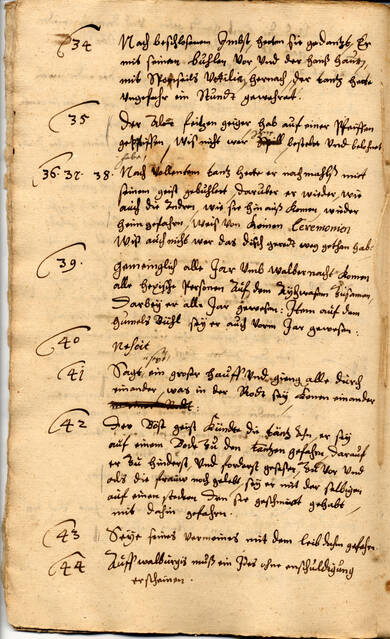 34 Nach beschehenem Imbst, hetten sie gedantzt, Er
mit seinen buhlen vor und der hanß haur,
mit Ottilia, hernach, der tantz hette
ungefahr ein stundt gewehret.
35 Der fritzen geiger hab auf einer Pfeiffen
gepfiffen, Wiß nicht wer bestelt und belohnt
habe
36. 37. 38. Nach vollentem tantz hette er nachmahlß mit
seinem geist gebuhlet darüber er wieder, wie
auch die Andern wie sie hinauß komen, wieder
heim gefahren, weiß von keinen Ceremonien
Wiß auch nicht wer das disch gereth weg gethan hab.
39. Gemeinglich alle Jar umb walbernacht komen
alle hexische Personen auf dem zusamen,
Darbey er alle Jar gewesen: Item auf dem
Bühl sey er auch vorm Jar gewesen.
40 Nescit
41 Sagt, ein großer hauff und gieng alle durch
einander, was in der Rott sey, konen einander
42 Der Böst geist kündt die täntz an, er sey
auf einem Bock zu den täntzen gefahren, darauf
er zu hinderst, und forderst gesessen, zu vor und
als die frauw noch gelebt sey er mit der selbigen
auf einen stecken den sie geschmirt gehabt,
mit dahin gefahren.
43 Seye seines vermeines mit dem leib dahin gefahren
44 Auff walburgis muß ein Jdes ohne enschuldigung
erscheinen.